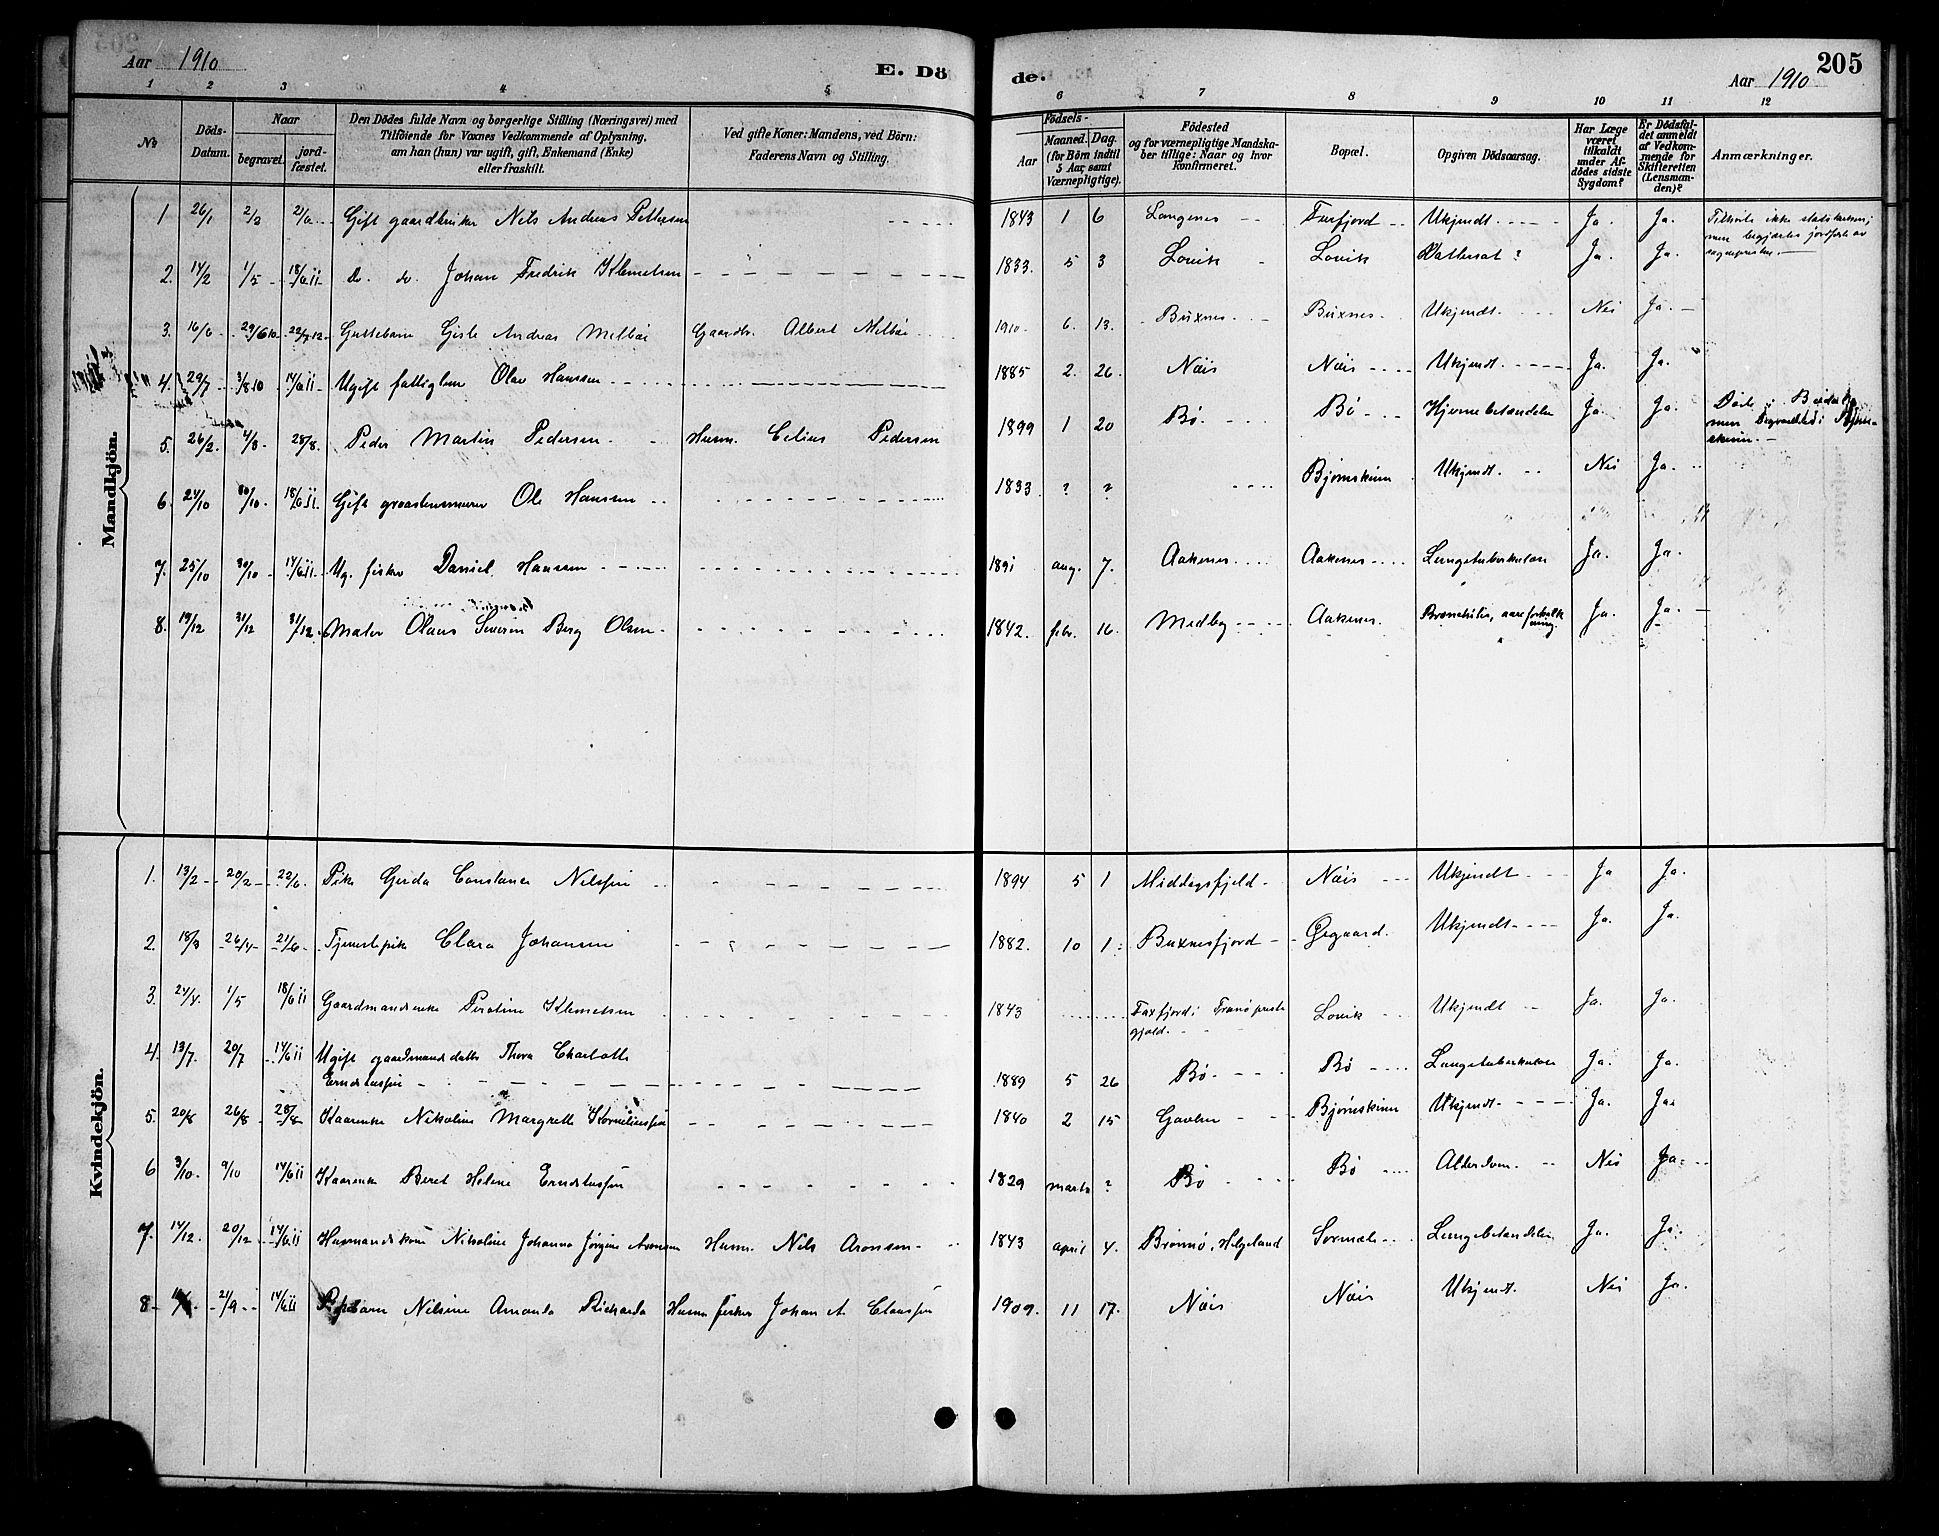 Aar 1910
E. Döde.
Aar 1910
205
1 2 3 4 5 6 7 8 9 10 11 12
No
Döds-Datum.
Naar
begravet.
jord-fæstet.
Den Dödes fulde Navn og borgerlige Stilling (Næringsvei) med
Tilföiende for Voxnes Vedkommende af Oplysning,
om han (hun) var ugift, gift, Enkemand (Enke)
eller fraskilt.
Ved gifte Koner: Mandens, ved Börn:
Faderens Navn og Stilling.
Födsels-
Aar
Maaned. Dag.
(for Börn indtil
5 Aar, samt
Værnepligtige).
Födested
og for værnepligtige Mandska-
ber tillige: Naar og hvor
konfirmeret.
Bopæl.
Opgiven Dödsaarsag.
Har Læge
været
tilkaldt
under Af-
dödes sidste
Sygdom?
Er Dödsfal-
det anmeldt
af Vedkom-
mende for
Skifteretten
(Lensman-
den)?
Anmærkninger.
Mandkjön.
1 26/1 2/2 2/6 Gift gaardbruker Nils Andreas Pettersen 1843 1 6 Langenes Faxfjord Ukjendt. Ja. Ja. Tilhørte ikke statskirken;
men begjærtes jordfæstet av
sognepresten.
2. 14/2 1/5 18/6 11 do. do. Johan Fredrik Klemetsen 1833. 5 3 Lovik Lovik Vattersot? Ja. Ja.
3. 16/6 29/6 10 Guttebarn Gisle Andreas Melbøe Gaardb. Albert Melbøe 1910 6. 13. Buxnes. Buxnes. Ukjendt. Nei Ja.
4. 29/7 3/8 10 14/6 11 Ugift fattiglem Olav Hansen 1885 2. 26. Nøis Nøis Ukjendt. Ja. Ja.
5. 26/2 4/8 28/8. Peder Martin Pedersen Husm. Celius Pedersen 1899 1 20 Bø. Bø Hjernebetændelse Ja. Ja. Døde i
men
skinn.
6. 24/10 30/10 18/6 11. Gift graastensmurer Ole Hansen 1833 ? ? Bjørnskinn Ukjendt. Nei Ja.
7. 25/10 30/10 14/6 11. Ug. fisker Daniel Hansen 1891 aug. 7. Aakenes Aakenes Lungetuberkulose Ja. Ja.
8. 19/12 31/12 31/12. Maler Olaus Severin Berg Olsen 1842. febr. 16. Medby Aakenes. Bronchitis, aareforkalk
ning. Ja. Ja.
Kvindekjön.
1. 13/2 20/2 22/6 Pike Gerda Constance Nilssen 1894 5 1 Middagsfjeld. Nøis Ukjendt Ja Ja.
2. 18/3 26/4 21/6 Tjenestepike Clara Johansen 1882. 10 1. Buxnesfjord Øvgaard. Ukjendt. Ja. Ja.
3. 24/4. 1/5 18/6 11 Gaardmandsenke Peroline Klemetsen 1843 Faxfjord i Tranø preste
gjeld. Lovik Ukjendt Ja. Ja.
4. 13/7. 20/7 14/6 11 Ugift gaardmandsdatter Thora Charlotte
Erndtussen 1889 5 26 Bø. Bø Lungetuberkulose Ja. Ja.
5. 20/8 26/8 28/8 Kaarenke Nikoline Margrethe Korneliussen 1840 2 15 Gavlen Bjørnskinn Ukjendt. Ja. Ja.
6 3/10. 9/10 14/6 11 Kaarenke Beret Helene Erndtussen 1829 marts ? Bø Bø Alderdom. Nei Ja.
7. 14/12. 20/12 14/6 11 Husmandskone Nikoline Johanna Jørgine Aronsen Husm. Nils Aronsen 1843 april 4. Brønnø, Helgeland Sormæle Lungebetændelse Ja. Ja.
8 21/9 14/6 11 Pikebarn Nilsine Amanda Rikharda Husm. fisker Johan A. Claussen 1909. 11 17. Nøis Nøis Ukjendt. Nei Ja.